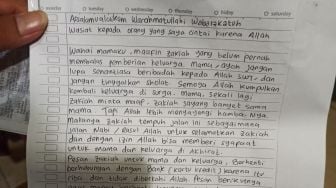 monday tuesday wednesday thursday friday saturday
Assalamualaikum Warohmatullahi Wabarakatuh
Wasiat kepada orang yang saya cintai karena Allah
Wahai mamaku, maupun zakiah yang belum pernah
membalas pemberian keluarga. Mama, ayah jangan
lupa senantiasa beribadah kepada Allah swt. dan
jangan tinggalkan sholat. Semoga Allah kumpulkan
kembali keluarga di surga. mama, sekali lagi,
zakiah minta maaf. zakiah sayang banget sama
mama. Tapi Allah lebih menyayangi hamba Nya
makanya zakiah tempuh jalan ini sebagaimana
jalan Nabi/Rasul Allah untuk selamatkan zakiah
dan dengan izin Allah bisa memberi syapaat
untuk mama dan keluarga di Akhirat.
Pesan zakiah untuk mama dan keluarga, Berhenti
berhubungan dengan Bank (kartu kredit) karena itu
riba dan tidak diberkahi Allah. Pesan berikutnya